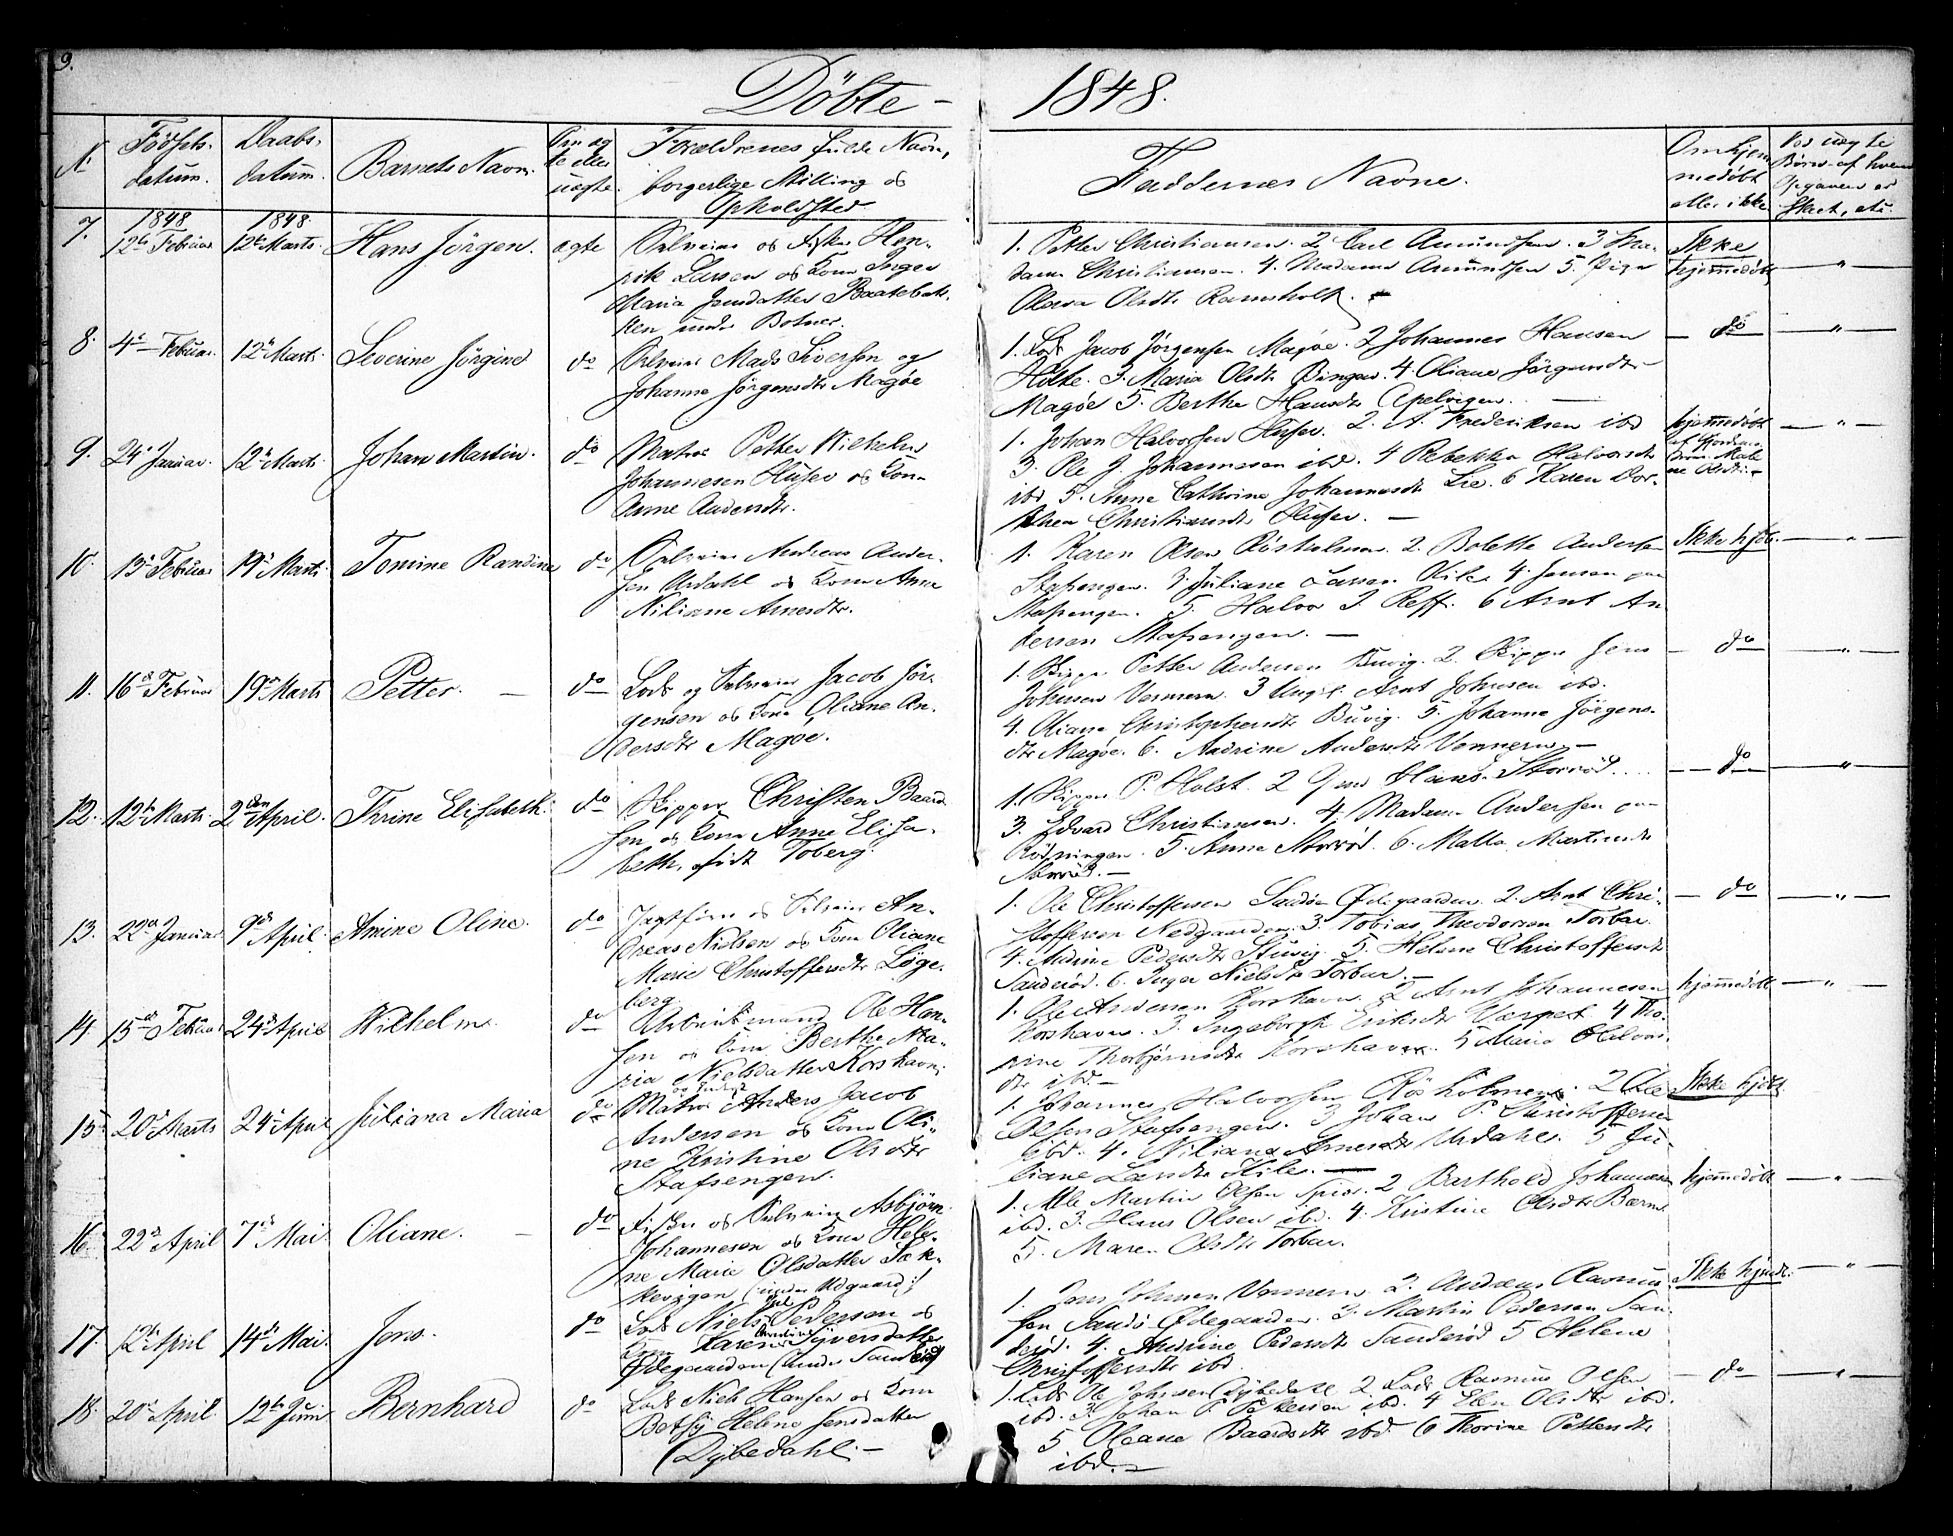 9.
Döbte - 1848.
N.
Födsels-
datum.
Daabs-
datum.
Barnets Navn.
Om æg
te eller
uægte.
Forældrenes fulde Navn,
borgerlige Stilling og
Opholdsted.
Faddernes Navne.
Om hjem
medöbt
eller ikke
Ved uægte
Börn af hvem
Opgaven er
skeet, etc.
7.
1848
12te Februar
1848
12te Marts.
Hans Jörgen.
ægte
Selveier og Hen-
rik Larsen og Kone Inger
Maria
under Botner.
1. Petter Christiansen. 2 Carl Amundsen. 3 Ma-
dam Christiansen. 4. Madame Amundsen 5. Pige
Olava Olsdtr Ramsholt.
Ikke
hjemmedöbt
"
8.
4de Februar.
12te Marts.
Severine Jörgine
do
Selveier Mads Siversen og
Johanne Jörgensdtr Magöe
1. Lods Jacob Jörgensen Magöe. 2 Johannes Hansen
Holte. 3. Maria Olsdtr Bingen. 4. Oliane Jörgensdtr
Magöe 5. Berthe Hansdtr Apelvigen.
do
"
9.
24de Januar.
12te Marts.
Johan Martin.
do
Matros Petter Wilhelm
Johannesen Huser og Kone
Anne Andersdtr.
1. Johan Halvorsen Huser. 2. A. Frederiksen ibd
3. Ole J. Johannesen ibd. 4 Rebekka Halvorsdtr
ibd 5. Anne Cathrine Johannesdtr Lie. 6 Karen Dor-
thea Christiansdtr Huser.
hjemmedöbt
af Jordmo-
deren Male-
ne Olsdtr.
"
10.
13de Februar
19de Marts
Tomine Randine
do
Selveier Andreas Ander-
sen Urdahl og Kone Anne
Niliane Arnesdtr.
1. Karen Olsen Rösholmen. 2. Bolette Andersen
Stafsengen. 3. Juliane Larsen Kile 4. Jensen paa
Stafsengen. 5. Halvor J. Röff. 6 Arnt An-
dersen Stafsengen.
Ikke hjdt.
"
11.
16de Februar
19de Marts
Petter.
do
Lods og Selveier Jacob Jör-
gensen og Kone Oliane An-
dersdtr Magöe.
1. Skipper Petter Andersen Buvig. 2. Skipper Jens
Johnsen Vennern. 3 Ungk. Arnt Johnsen ibd.
4. Oliane Christophersdtr Buvig. 5. Johanne Jörgens-
dtr Magöe. 6. Andrine Andersdtr Vennern.
do
"
12.
12te Marts.
2den April.
Thrine Elisabeth.
do
Skipper Christen Baard-
sen og Kone Anne Elisa-
beth, födt Toberg.
1. Skipper P. Holst. 2 Hans Storröd.
3. Edvard Christiansen. 4. Madam Andersen paa
Rödningen. 5. Anne Storröd. 6. Malla Martinsdtr
Storröd.
do
"
13.
22de Januar
9de April.
Amine Oline.
do
Jagtförer og Selveier An-
dreas Nielsen og Kone Oliane
Marie Christoffersdtr Löge-
berg.
1. Ole Christoffersen Sandöe Ödegaarden. 2. Arnt Chri-
stoffersen Nedgaarden. 3. Tobias Theodorsen Torbur.
4. Andrine Pedersdtr Stuvig. 5. Helene Christoffersdtr
Sanderöd. 6. Inger Nielsdtr Torbur.
do
"
14
15de Februar
24de April
Wilhelm.
do
Arbeidsmand Ole Han-
sen og Kone Berthe Ma-
ria Nielsdatter Korshavn.
1. Ole Andersen Korshavn. 2 Arnt Johannesen
Korshavn. 3. Ingeborgh Eriksdtr Vasper. 4 Tho-
rine Thorbjörnsdtr Korshavn. 5 Maria Halvors-
dtr ibd.
hjemmedöbt
"
15
20de Marts
24de April
Juliana Maria
do
Matros Anders Jacob
Andersen og Kone Oli-
ne Kristine Olsdtr
Stafsengen.
1. Johannes Halvorsen Rösholmen. 2 Ole
Olsen Stafsengen. 3 Johan P. Christoffersen
ibd. 4. Niliana Arnesdtr Urdahl. 5 Ju-
liane Larsdtr Kile.
Ikke hjdt.
"
16.
22de April
7de Mai.
Oliane.
do
Fisker og Selveier Asbjörn
Johannesen og Kone Hele-
ne Marie Olsdatter Sæk-
kevigen (under Udgaard.)
1. Martin Olsen Spiör. 2 Berthold Johannesen
ibd. 3. Hans Olsen ibd. 4. Kristine Olsdtr Bærnes
5. Maren Olsdtr Torbur.
hjemmedöbt
"
17.
12te April
14de Mai.
Jens.
do
Lods Niels Pederson og
Kone Karen Syversdatter
Ödegaarden (under Sanderöd)
1. Jens Johnsen Vennern. 2. Andreas Rasmus-
sen Sandö Ödegaarden. 3. Martin Pedersen San-
deröd. 4. Andrine Pedersdtr Sanderöd 5 Helene
Christoffersdtr ibd.
Ikke hjmdt.
"
18.
20de April
12te Juni
Bernhard
do
Lods Niels Hansen og Kone
Betsy Helene Jensdatter
Dybedahl.
1. Lods Ole Johnsen Dybedahl 2. Lods Rasmus Olsen
ibd. 3. Johan P. Pedersen ibd. 4 Elen Olsdtr ibd.
5 Oleane Baardsdtr ibd 6 Thorine Pettersdtr
ibd.
do
"